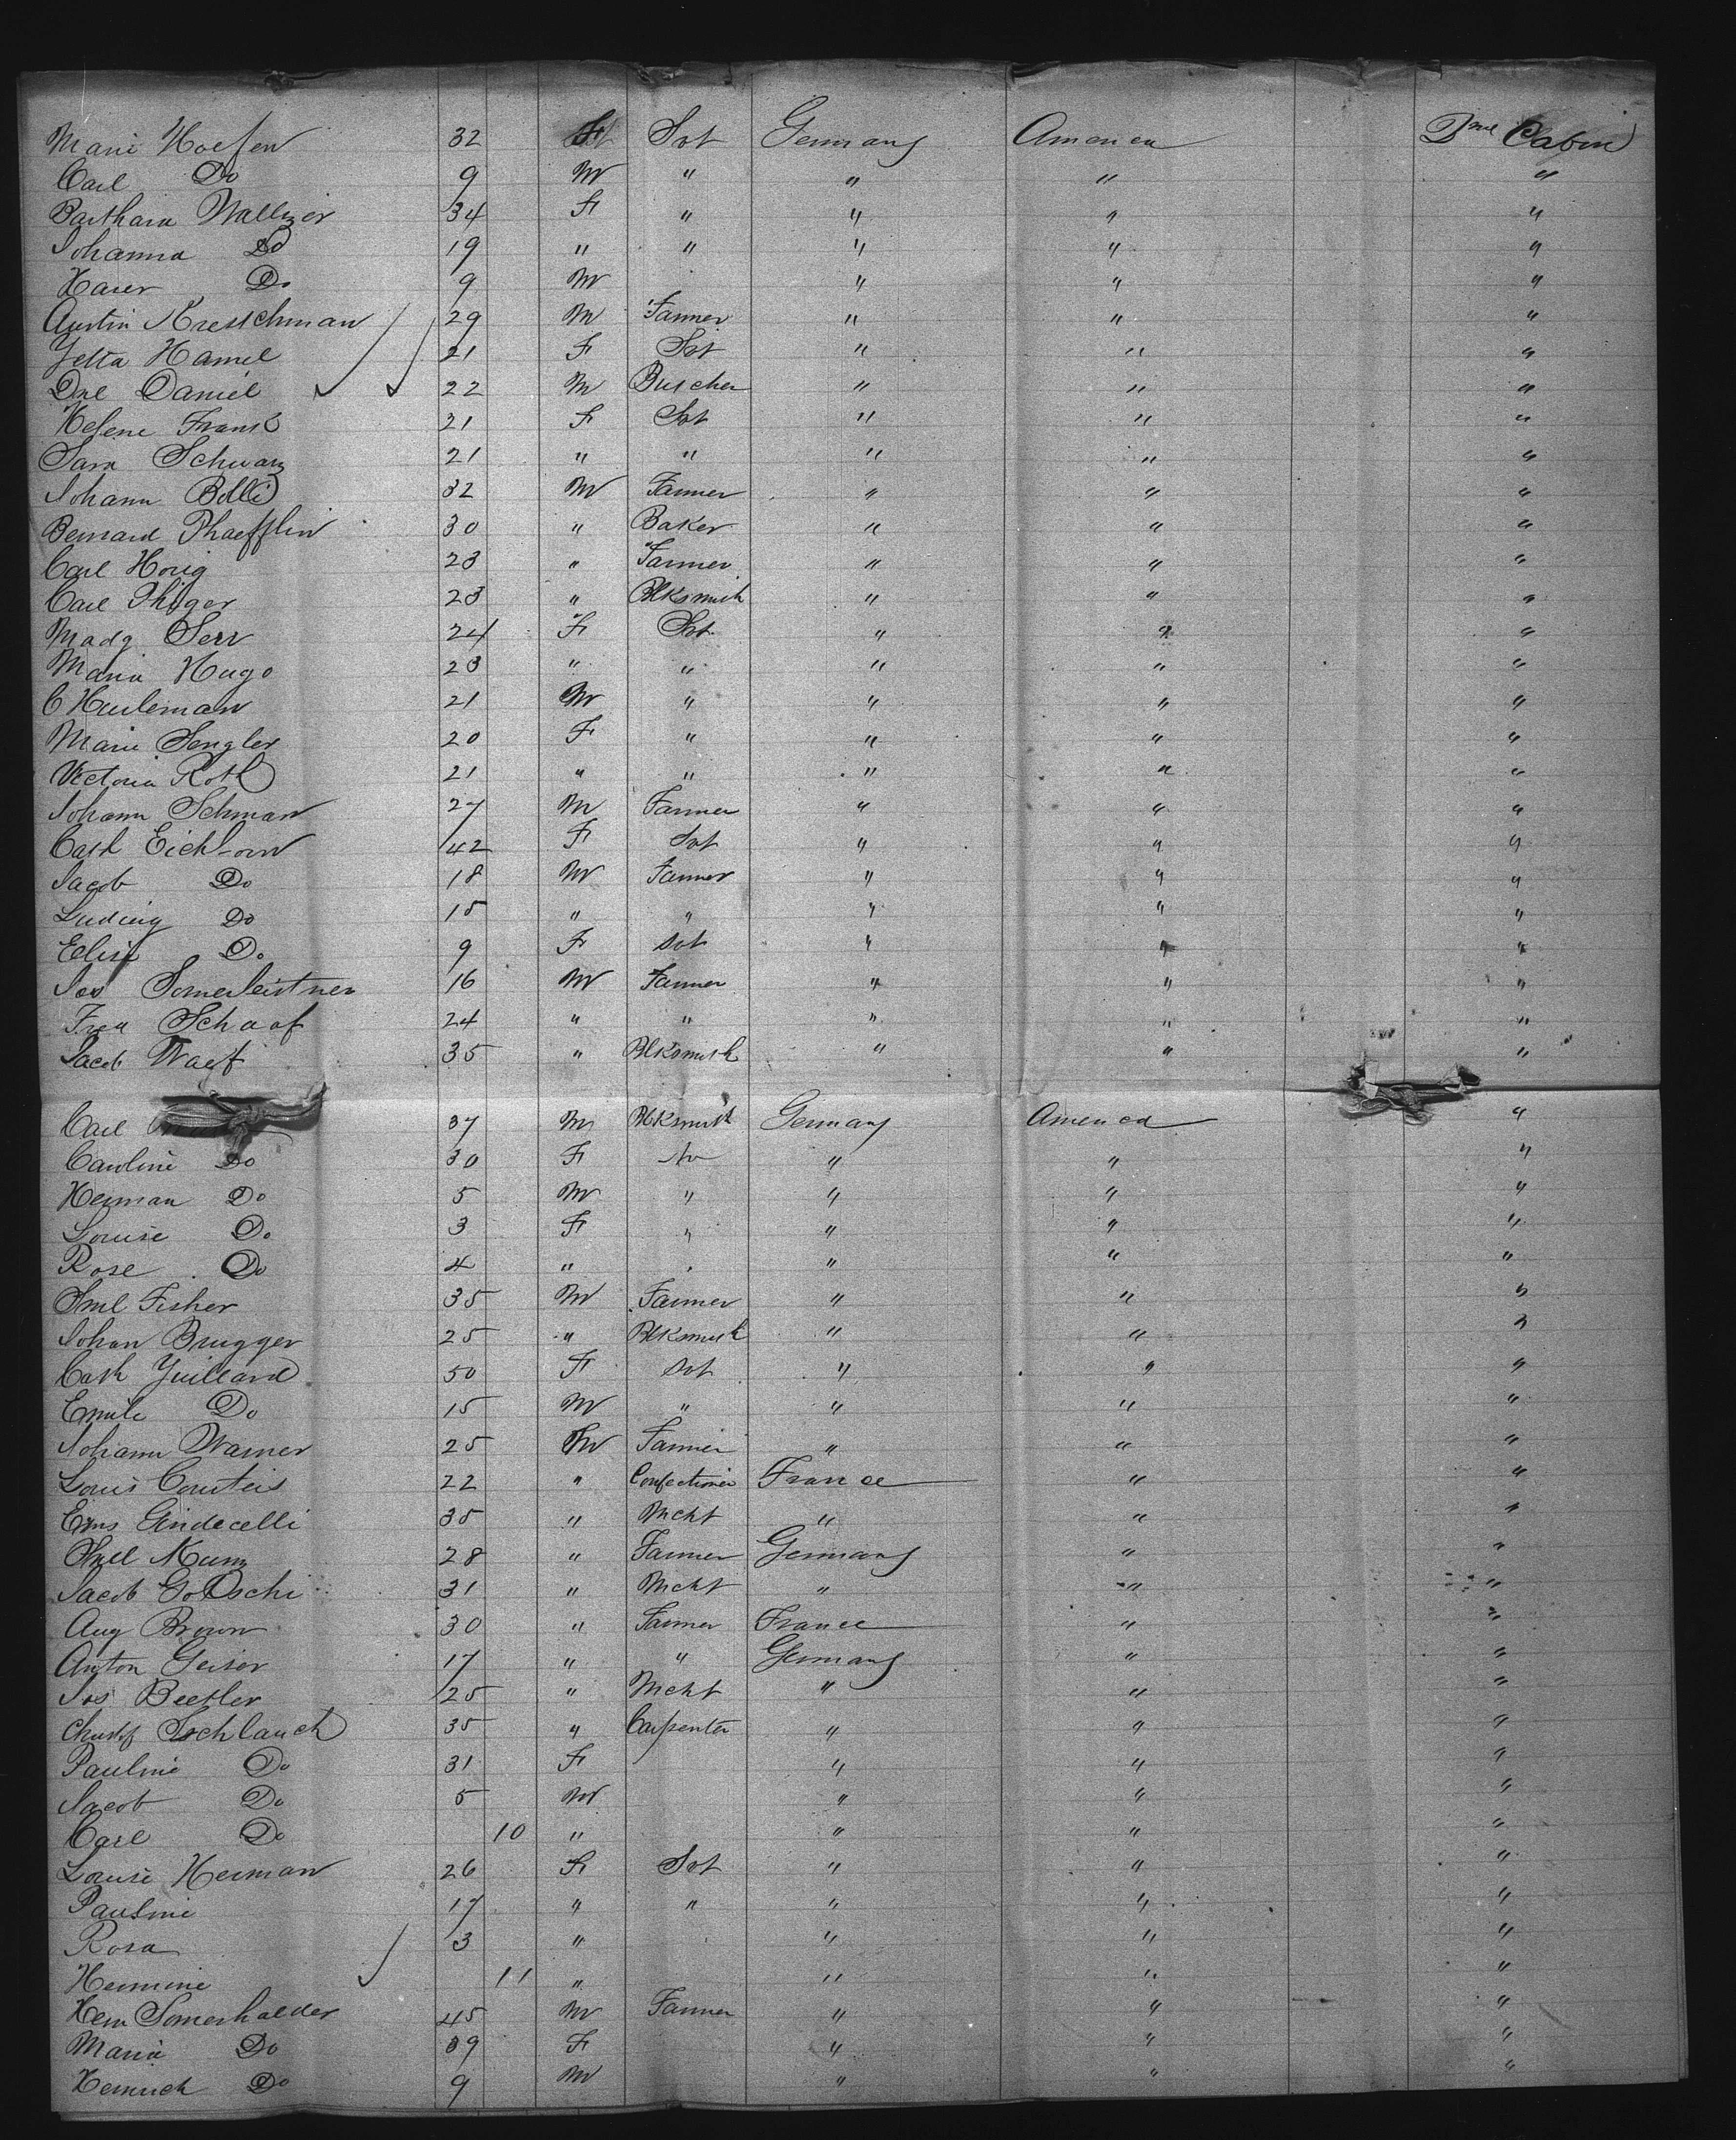 Marie Hoefen 32 F Svt Germany America 2nd Cabin
Carl Do 9 M " " " "
Barthara Wallner 34 F " " " "
Johanna Do 19 " " " " "
Xaver Do 9 M " " "
Austin Kresschman 29 M Farmer " " "
Yetta Hamel 21 F Svt " " "
Dnl Daniel 22 M Buscher " " "
Helene Frank 21 F Svt " " "
Sara Schwarz 21 " " " " "
Johann Bolli 32 M Farmer " " "
Bernard Phaefflin 30 " Baker " " "
Carl Horig 23 " Farmer " " "
Carl Phliger 23 " Blksmith " " "
Madg Serr 24 F Svt " " "
Maria Hugo 23 " " " " "
C Hurleman 21 M " " " "
Marie Sengler 20 F " " " "
Victoria Roth 21 " " " " "
Johann Schman 27 M Farmer " " "
Cath Eichhorn 42 F Svt " " "
Jacob Do 18 M Farmer " " "
Ludwig Do 15 " " " " "
Elise Do 9 F Svt " " "
Jos Somerleistner 16 M Farmer " " "
Fred Schaaf 24 " " " " "
Jacob Waef 35 " Blksmith " " "
Carl 37 M Blksmith Germany America "
Caroline Do 30 F " " "
Herman Do 5 M " " " "
Louise Do 3 F " " " "
Rose Do 4 " " " "
Saml Fisher 35 M Farmer " " "
Johan Brugger 25 " Blksmith " " "
Cath Juillard 50 F Svt " " "
Emile Do 15 M " " " "
Johann Warner 25 M Farmer " " "
Louis Conteis 22 " Confectioner France " "
Erns Gindecelli 35 " Mcht " " "
Saml Kunz 28 " Farmer Germany " "
Jacob Gotschi 31 " Mcht " " "
Aug Brown 30 " Farmer France " "
Anton Geiser 17 " " Germany " "
Jos Beetler 25 " Mcht " " "
Christf Tschlauch 35 " Carpenter " " "
Pauline Do 31 F " " "
Jacob Do 5 M " " "
Carl Do 10 " " " "
Louise Herman 26 F Svt " " "
Pauline 17 " " " " "
Rosa 3 " " " "
Hermine 11 " " " "
Hern Somerhalder 45 M Farmer " " "
Maria Do 39 F " " "
Heinrich Do 9 M " " "